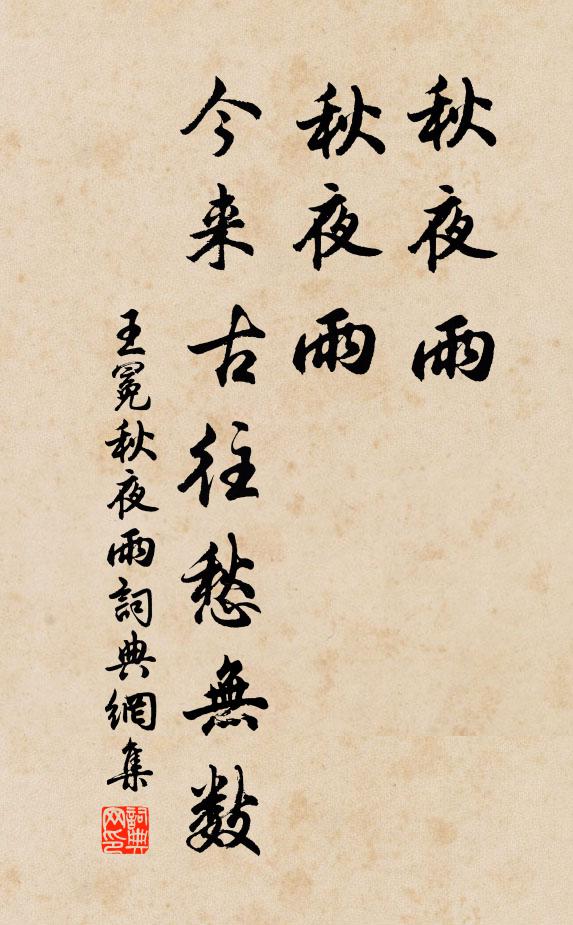 秋夜雨
秋夜雨
今来古往愁無数
王冕秋夜雨詞典網集
詞典网印